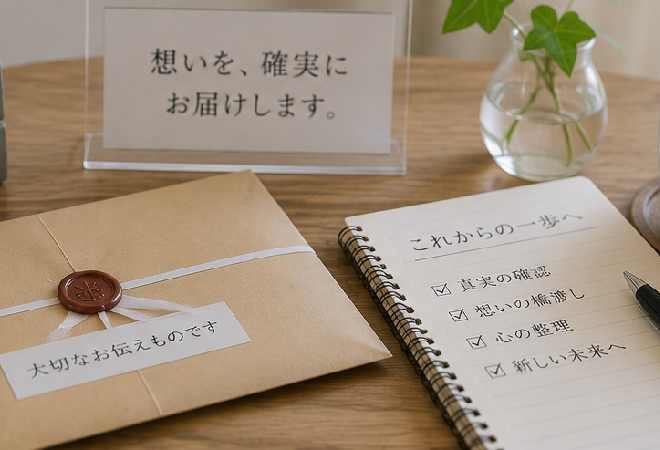 想いを、確実に
お届けします。
大切なお伝えものです
これからの一歩へ
☑ 真実の確認
☑ 想いの橋渡し
☑ 心の整理
☑ 新しい未来へ